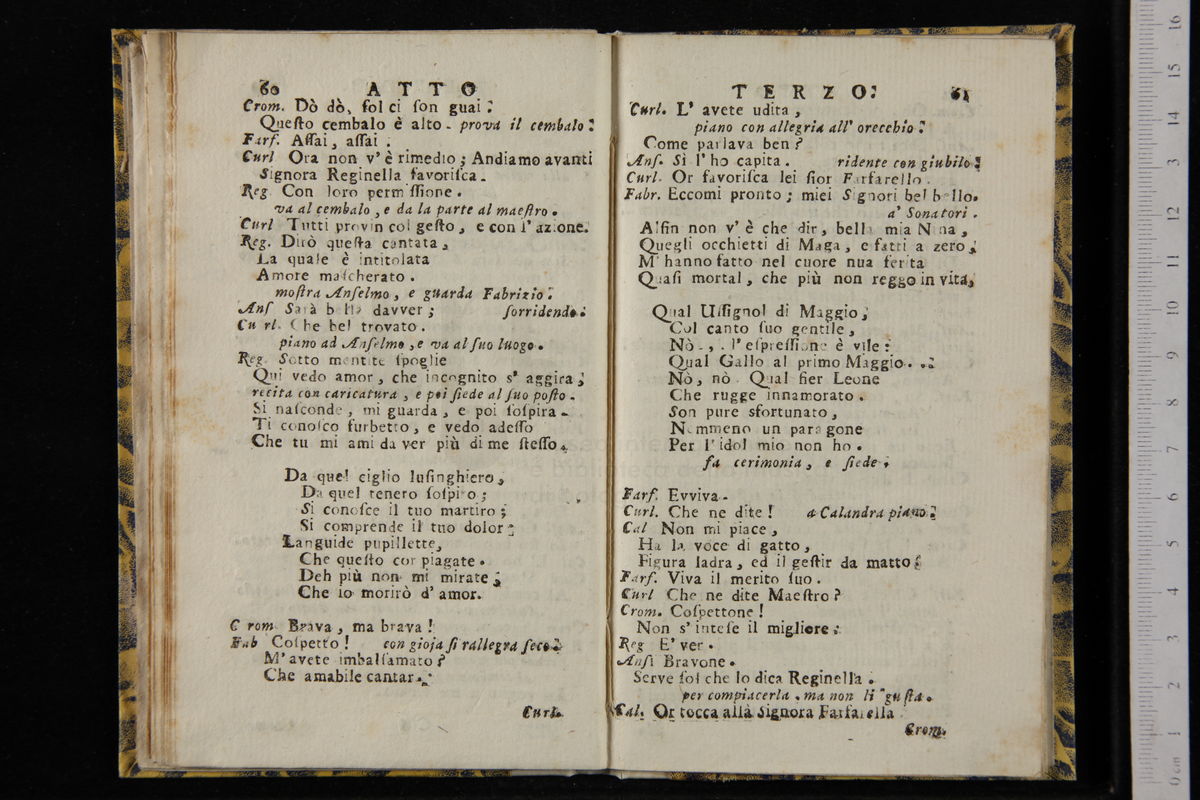 60 ATTO
Crom. Dò dò, sol ci son guai:
Questo cembalo è alto. prova il cembalo:
Farf. Assai, assai.
Curl Ora non v'è rimedio; Andiamo avanti
Signora Reginella favorisca.
Reg. Con loro permissione.
va al cembalo, e da la parte al maestro.
Curl Tutti provin col gesto, e con l'azione.
Reg. Dirò questa cantata,
La quale è intitolata
Amore mascherato.
mostra Anselmo, e guarda Fabrizio:
Ans Sarà bella davver; sorridendo:
Cu rl. Che bel trovato.
piano ad Anselmo, e va al suo luogo.
Reg. Sotto mentite spoglie
Qui vedo amor, che incognito s' aggira;
recita con caricatura, e poi siede al suo posto.
Si nasconde, mi guarda, e poi sospira.
Ti conosco furbetto, e vedo adesso
Che tu mi ami da ver più di me stesso.
Da quel ciglio lusinghiero,
Da quel tenero sospiro;
Si conosce il tuo martiro;
Si comprende il tuo dolor:
Languide pupillette,
Che questo cor piagate.
Deh più non mi mirate;
Che io morirò d' amor.
C rom. Brava, ma brava!
Fab Cospetto! con gioja si rallegra seco:
M' avete imbalsamato?
Che amabile cantar.
Curl.
TERZO: 61
Curl. L' avete udita,
piano con allegria all' orecchio:
Come parlava ben?
Ans. Sì l' ho capita. ridente con giubilo:
Curl. Or favorisca lei sior Farfarello.
Fabr. Eccomi pronto; miei Signori bel bello.
a' Sonatori.
Alfin non v' è che dir, bella mia Nina,
Quegli occhietti di Maga, e fatti a zero;
M' hanno fatto nel cuore nua ferita
Quasi mortal, che più non reggo in vita,
Qual Ussignol di Maggio;
Col canto suo gentile,
Nò.,. l' espressione è vile:
Qual Gallo al primo Maggio. .:
Nò, nò. Qual fier Leone
Che rugge innamorato.
Son pure sfortunato,
Nemmeno un paragone
Per l' idol mio non ho.
fa cerimonia, e siede.
Farf. Evviva.
Curl. Che ne dite! a Calandra piano:
Cal Non mi piace,
Ha la voce di gatto,
Figura ladra, ed il gestir da matto:
Farf. Viva il merito suo.
Curl Che ne dite Maestro?
Crom. Cospettone!
Non s' intese il migliore;
Reg E' ver.
Ansi Bravone.
Serve sol che lo dica Reginella.
per compiacerla, ma non li gusta.
Cal. Or tocca alla Signora Farfarella
Crom.
0 cm 1 2 3 4 5 6 7 8 9 10 11 12 13 14 15 16